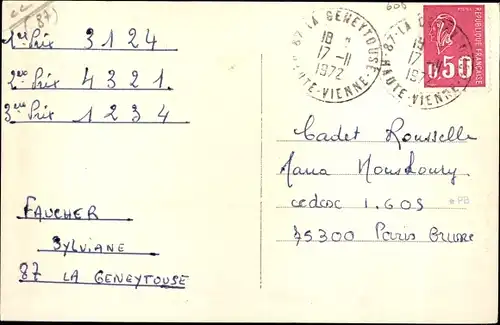 87)
1er Prix 3 1 2 4
2me Prix 4 3 2 1.
3me Prix 1 2 3 4
FAUCHER
SYLVIANE
87 LA GENEYTOUSE
87-LA GENEYTOUSE
18
17-11
1972
HAUTE-VIENNE
87-LA GENEYTOUSE
17-11
HAUTE-VIENNE
REPUBLIQUE FRANÇAISE
0,50
Cadet Rousselle
cedex 1.605
75300 Paris Brune
PB